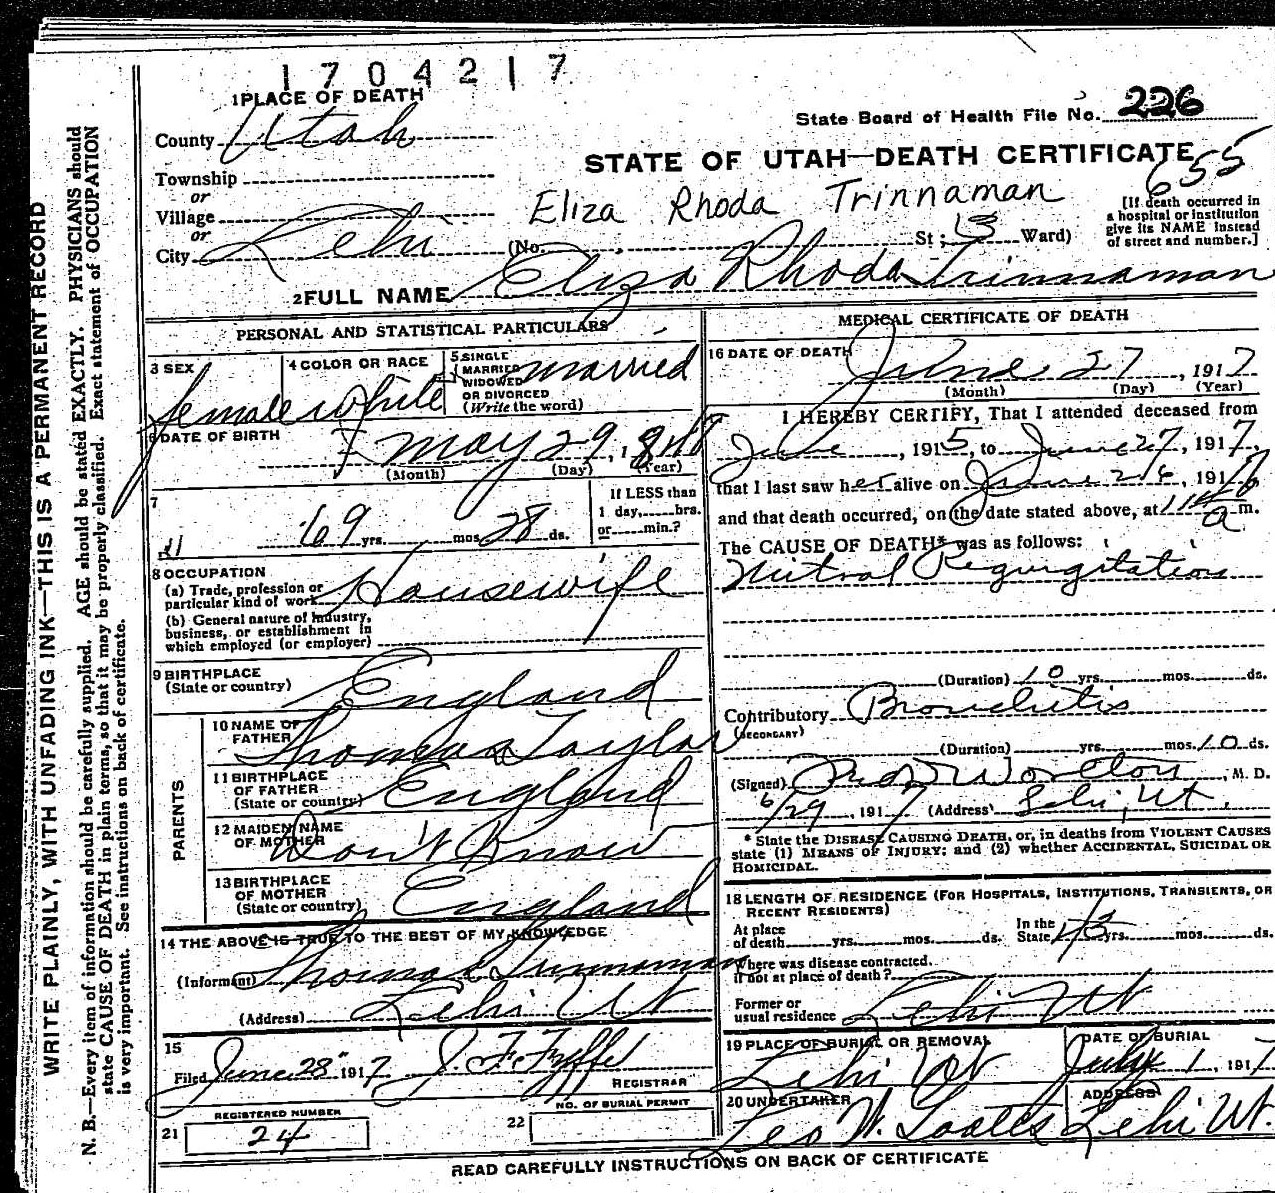 1704217
1 PLACE OF DEATH
State Board of Health File No. 226
County Utah
STATE OF UTAH—DEATH CERTIFICATE
655
Township
or
Village
or
City Lehi
Eliza Rhoda Trinnaman
(No. St; 3 Ward)
[If death occurred in
a hospital or institution
give its NAME instead
of street and number.]
2 FULL NAME Eliza Rhoda Trinnaman
PERSONAL AND STATISTICAL PARTICULARS
3 SEX female
4 COLOR OR RACE white
5 SINGLE
MARRIED
WIDOWED
OR DIVORCED
(Write the word)
married
6 DATE OF BIRTH
May 29, 18
(Month) (Day) (Year)
7
69 yrs. mos. 28 ds.
If LESS than
1 day, hrs.
or min.?
8 OCCUPATION
(a) Trade, profession or
particular kind of work Housewife
(b) General nature of industry,
business, or establishment in
which employed (or employer)
9 BIRTHPLACE
(State or country) England
PARENTS
10 NAME OF
FATHER Thomas Taylor
11 BIRTHPLACE
OF FATHER
(State or country) England
12 MAIDEN NAME
OF MOTHER Don't Know
13 BIRTHPLACE
OF MOTHER
(State or country) England
14 THE ABOVE IS TRUE TO THE BEST OF MY KNOWLEDGE
(Informant) Thomas Trinnaman
(Address) Lehi Ut
15
Filed June 28 1917 J. F. Fyffe
REGISTRAR
21 REGISTERED NUMBER
24
22 NO. OF BURIAL PERMIT
MEDICAL CERTIFICATE OF DEATH
16 DATE OF DEATH
June 27, 1917
(Month) (Day) (Year)
I HEREBY CERTIFY, That I attended deceased from
June, 1915, to June 27, 1917,
that I last saw her alive on June 26, 1917
and that death occurred, on the date stated above, at 11 a m.
The CAUSE OF DEATH* was as follows:
Mitral Regurgitation
(Duration) 10 yrs. mos. ds.
Contributory Bronchitis
(SECONDARY)
(Duration) yrs. mos. 10 ds.
(Signed) Worlton, M. D.
6/29, 1917 (Address) Lehi, Ut.
* State the DISEASE CAUSING DEATH, or, in deaths from VIOLENT CAUSES
state (1) MEANS OF INJURY; and (2) whether ACCIDENTAL, SUICIDAL OR
HOMICIDAL.
18 LENGTH OF RESIDENCE (FOR HOSPITALS, INSTITUTIONS, TRANSIENTS, OR
RECENT RESIDENTS)
At place
of death yrs. mos. ds.
In the
State 43 yrs. mos. ds.
Where was disease contracted,
if not at place of death?
Former or
usual residence Lehi Ut
19 PLACE OF BURIAL OR REMOVAL
Lehi Ut
DATE OF BURIAL
July 1, 1917
20 UNDERTAKER
Leo W. Loatts
ADDRESS
Lehi Ut.
READ CAREFULLY INSTRUCTIONS ON BACK OF CERTIFICATE
WRITE PLAINLY, WITH UNFADING INK—THIS IS A PERMANENT RECORD
N. B.—Every item of information should be carefully supplied. AGE should be stated EXACTLY. PHYSICIANS should
state CAUSE OF DEATH in plain terms, so that it may be properly classified. Exact statement of OCCUPATION
is very important. See instructions on back of certificate.